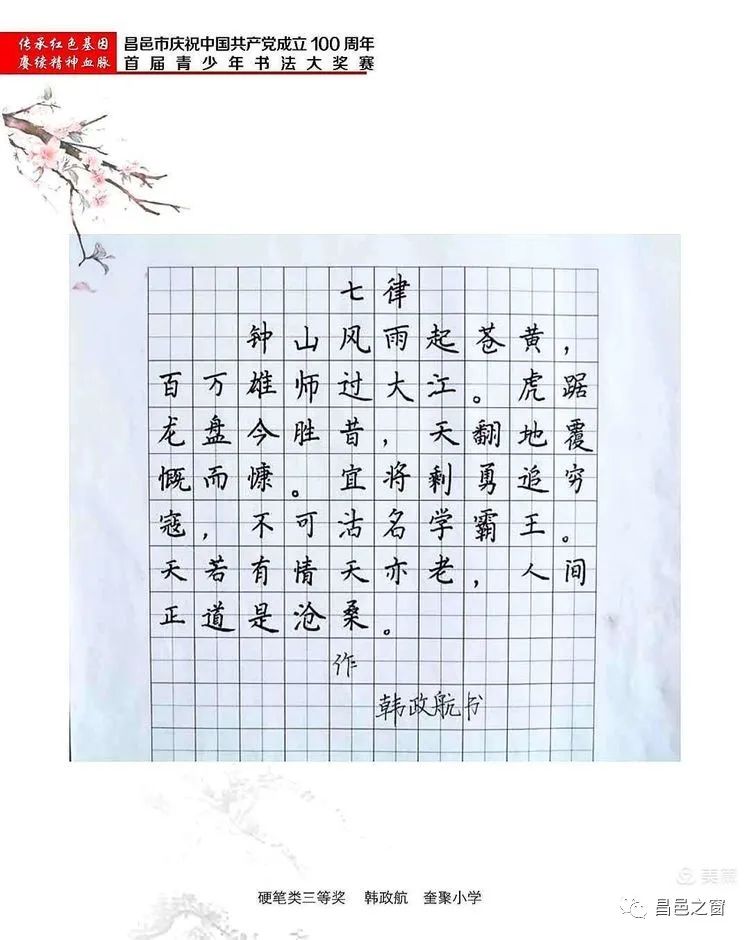 传承红色基因
赓续精神血脉
昌邑市庆祝中国共产党成立100周年
首届青少年书法大奖赛
七律
钟山风雨起苍黄，
百万雄师过大江。虎踞
龙盘今胜昔，天翻地覆
慨而慷。宜将剩勇追穷
寇，不可沽名学霸王。
天若有情天亦老，人间
正道是沧桑。
作
韩政航书
美篇
硬笔类三等奖 韩政航 奎聚小学
昌邑之窗